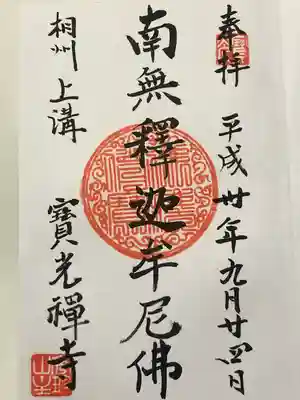 奉拝 平成卅年九月廿四日
南無釋迦牟尼佛
相州 上溝 寳光禪寺